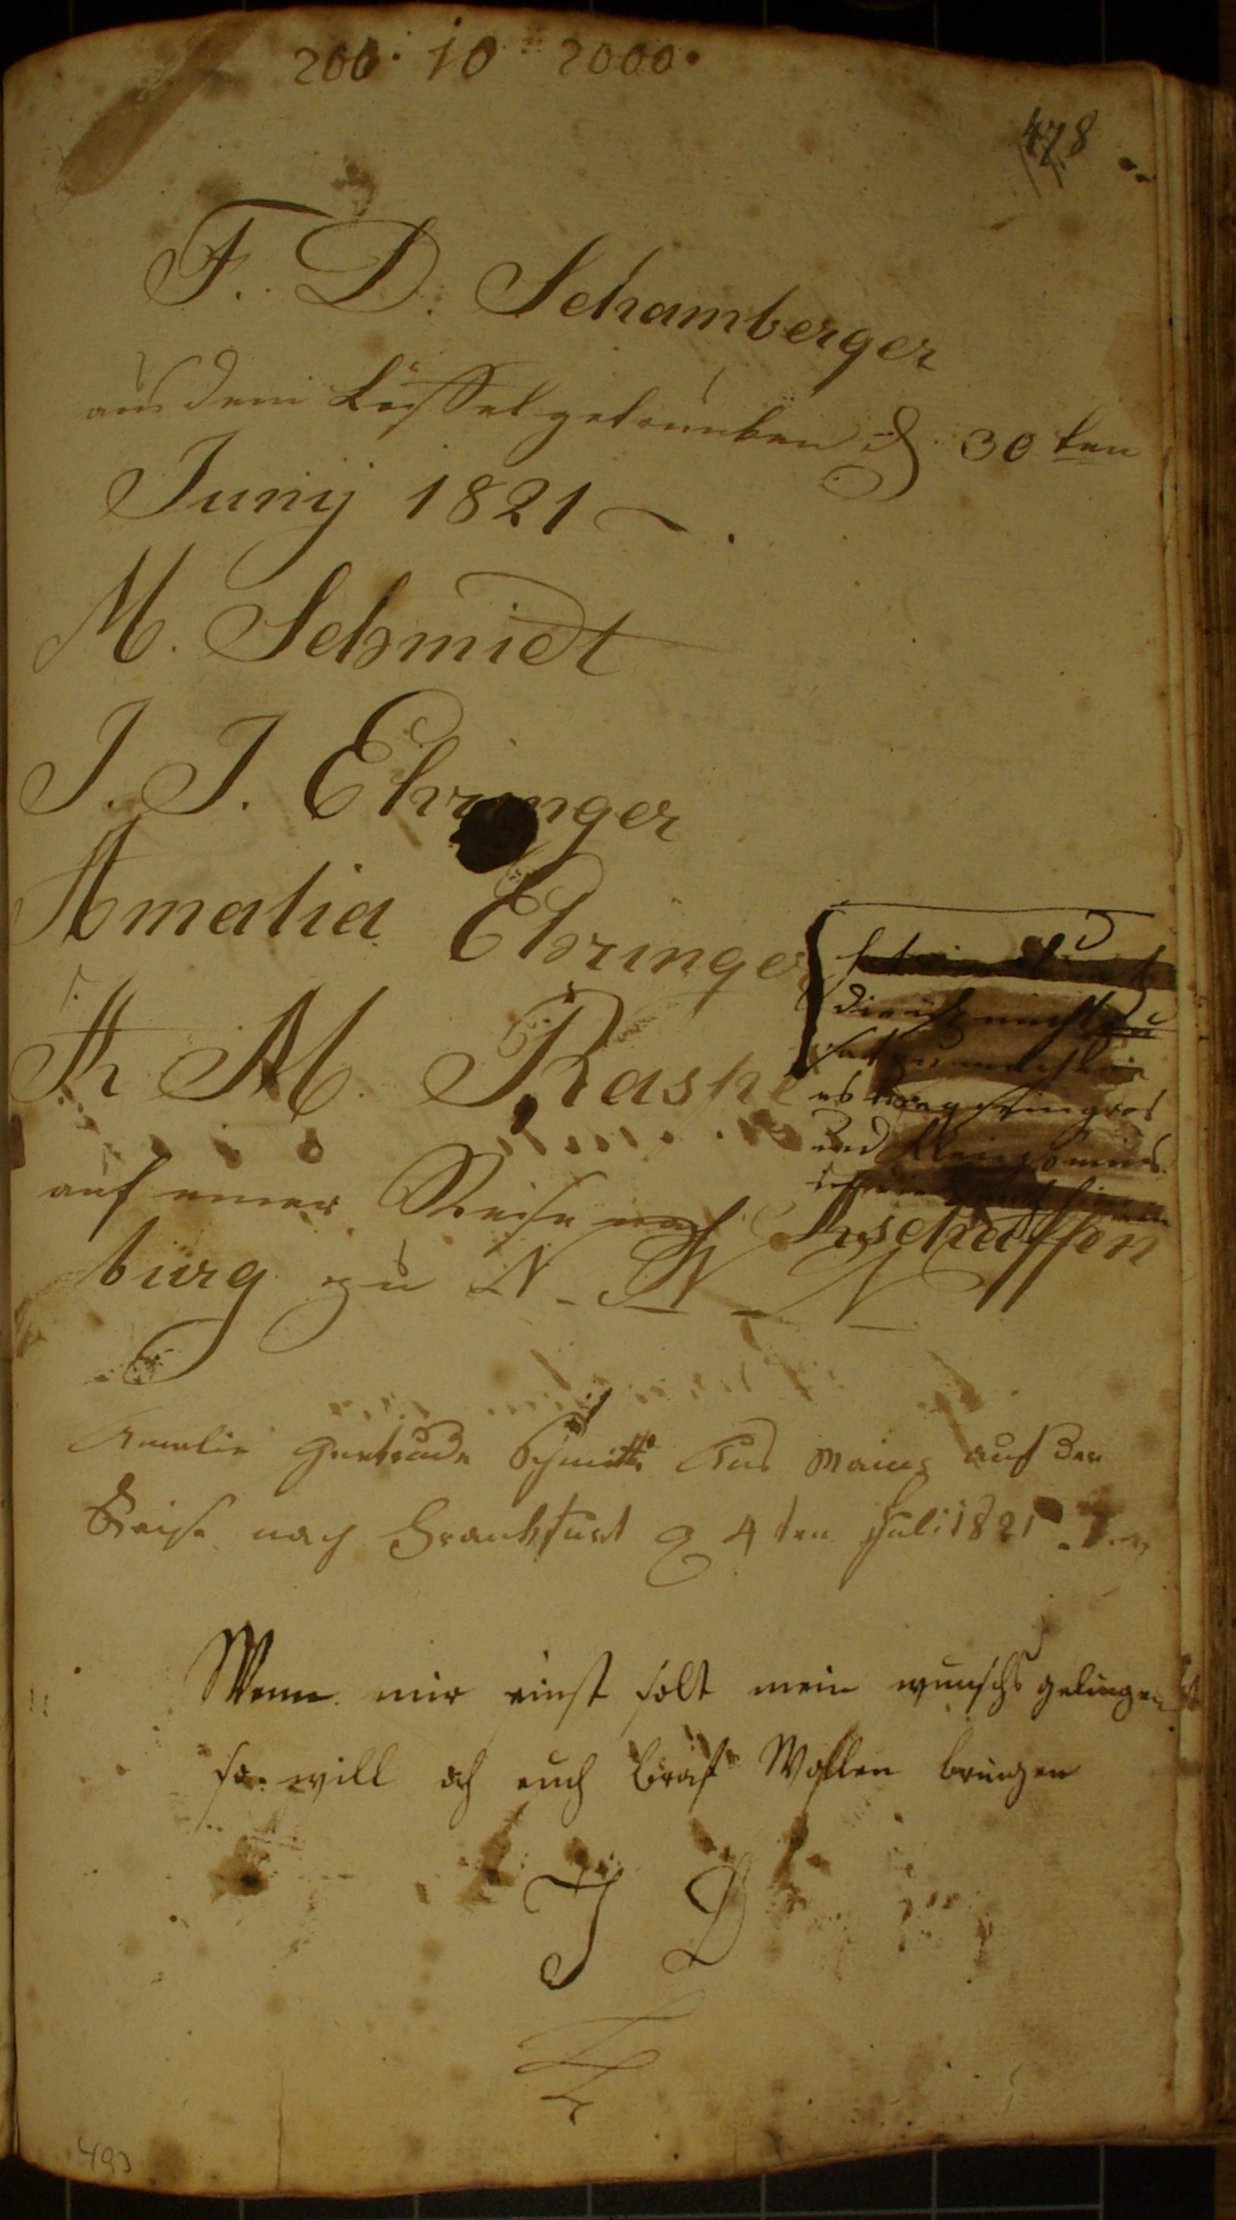 200 · 10 · 2000 ·
478
F. D. Schamberger
aus dem Löffel getrunken d 30 ten
Junij 1821
M. Schmidt
J. J. Ehringer
Amalia Ehringer
A M. Raske
die ich nicht
und
auf einer Reise nach Aschaffen
burg zu N_N_N_
Amalie Gertrude Schmitt Aus Mainz auf der
Reise nach Frankfurt d 4 ten Juli 1821
Wenn mir einst solt mein wunsch gelingen
so will ich euch braf Wollen bringen
J D
493